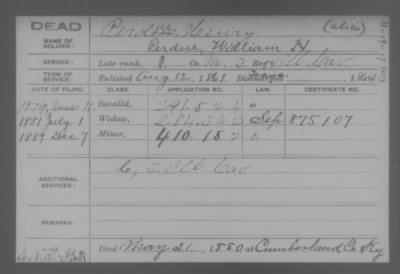 DEAD
NAME OF SOLDIER: Henry (alias)
Perdue, William H.
SERVICE: Late rank, P. Co. M, 3 Reg't Ill. Cav
TERM OF SERVICE: Enlisted Aug 12, 1861 Discharged , 1864
DATE OF FILING. CLASS. APPLICATION NO. LAW. CERTIFICATE NO.
1879, June Invalid, 291.524
1881 July 1 Widow, 284.342 Sep 875107
1889 Dec 7 Minor, 410.152
ADDITIONAL SERVICES: Co, 3 Ill. Cav.
REMARKS:
Died May 21, 1880 at Cumberland Co Ky